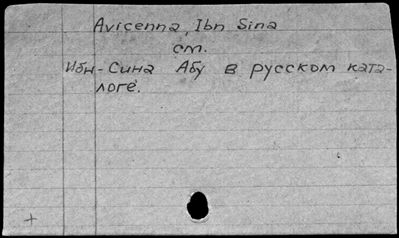 Avicenna, Ibn Sina
см.
Ибн-Сина Абу в русском ката-
логе.
+